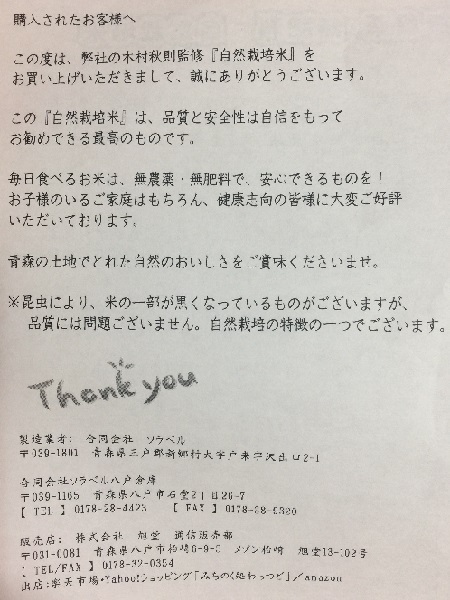 購入されたお客様へ
この度は、弊社の木村秋則監修『自然栽培米』を
お買い上げいただきまして、誠にありがとうございます。
この『自然栽培米』は、品質と安全性は自信をもって
お勧めできる最高のものです。
毎日食べるお米は、無農薬・無肥料で、安心できるものを！
お子様のいるご家庭はもちろん、健康志向の皆様に大変ご好評
いただいております。
青森の土地でとれた自然のおいしさをご賞味くださいませ。
※昆虫により、米の一部が黒くなっているものがございますが、
品質には問題ございません。自然栽培の特徴の一つでございます。
Thank you
製造業者: 合同会社 ソラベル
〒039-1801 青森県三戸郡新郷村大字戸来字沢出口2-1
合同会社ソラベル八戸倉庫
〒039-1165 青森県八戸市石堂2丁目26-7
【 TEL 】 0178-28-4423 【 FAX 】 0178-28-5320
販売店: 株式会社 旭堂 通信販売部
〒031-0081 青森県八戸市柏崎6-9-6 メゾン柏崎 旭堂13-102号
【 TEL/FAX 】 0178-32-0354
出店:楽天市場・Yahoo!ショッピング「みちのく起わっつど」/amazon